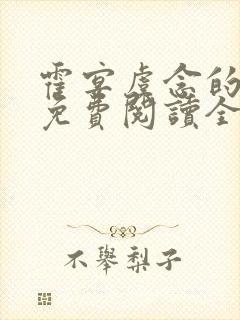 霍宴虞念的
免費閱讀全
不舉梨子